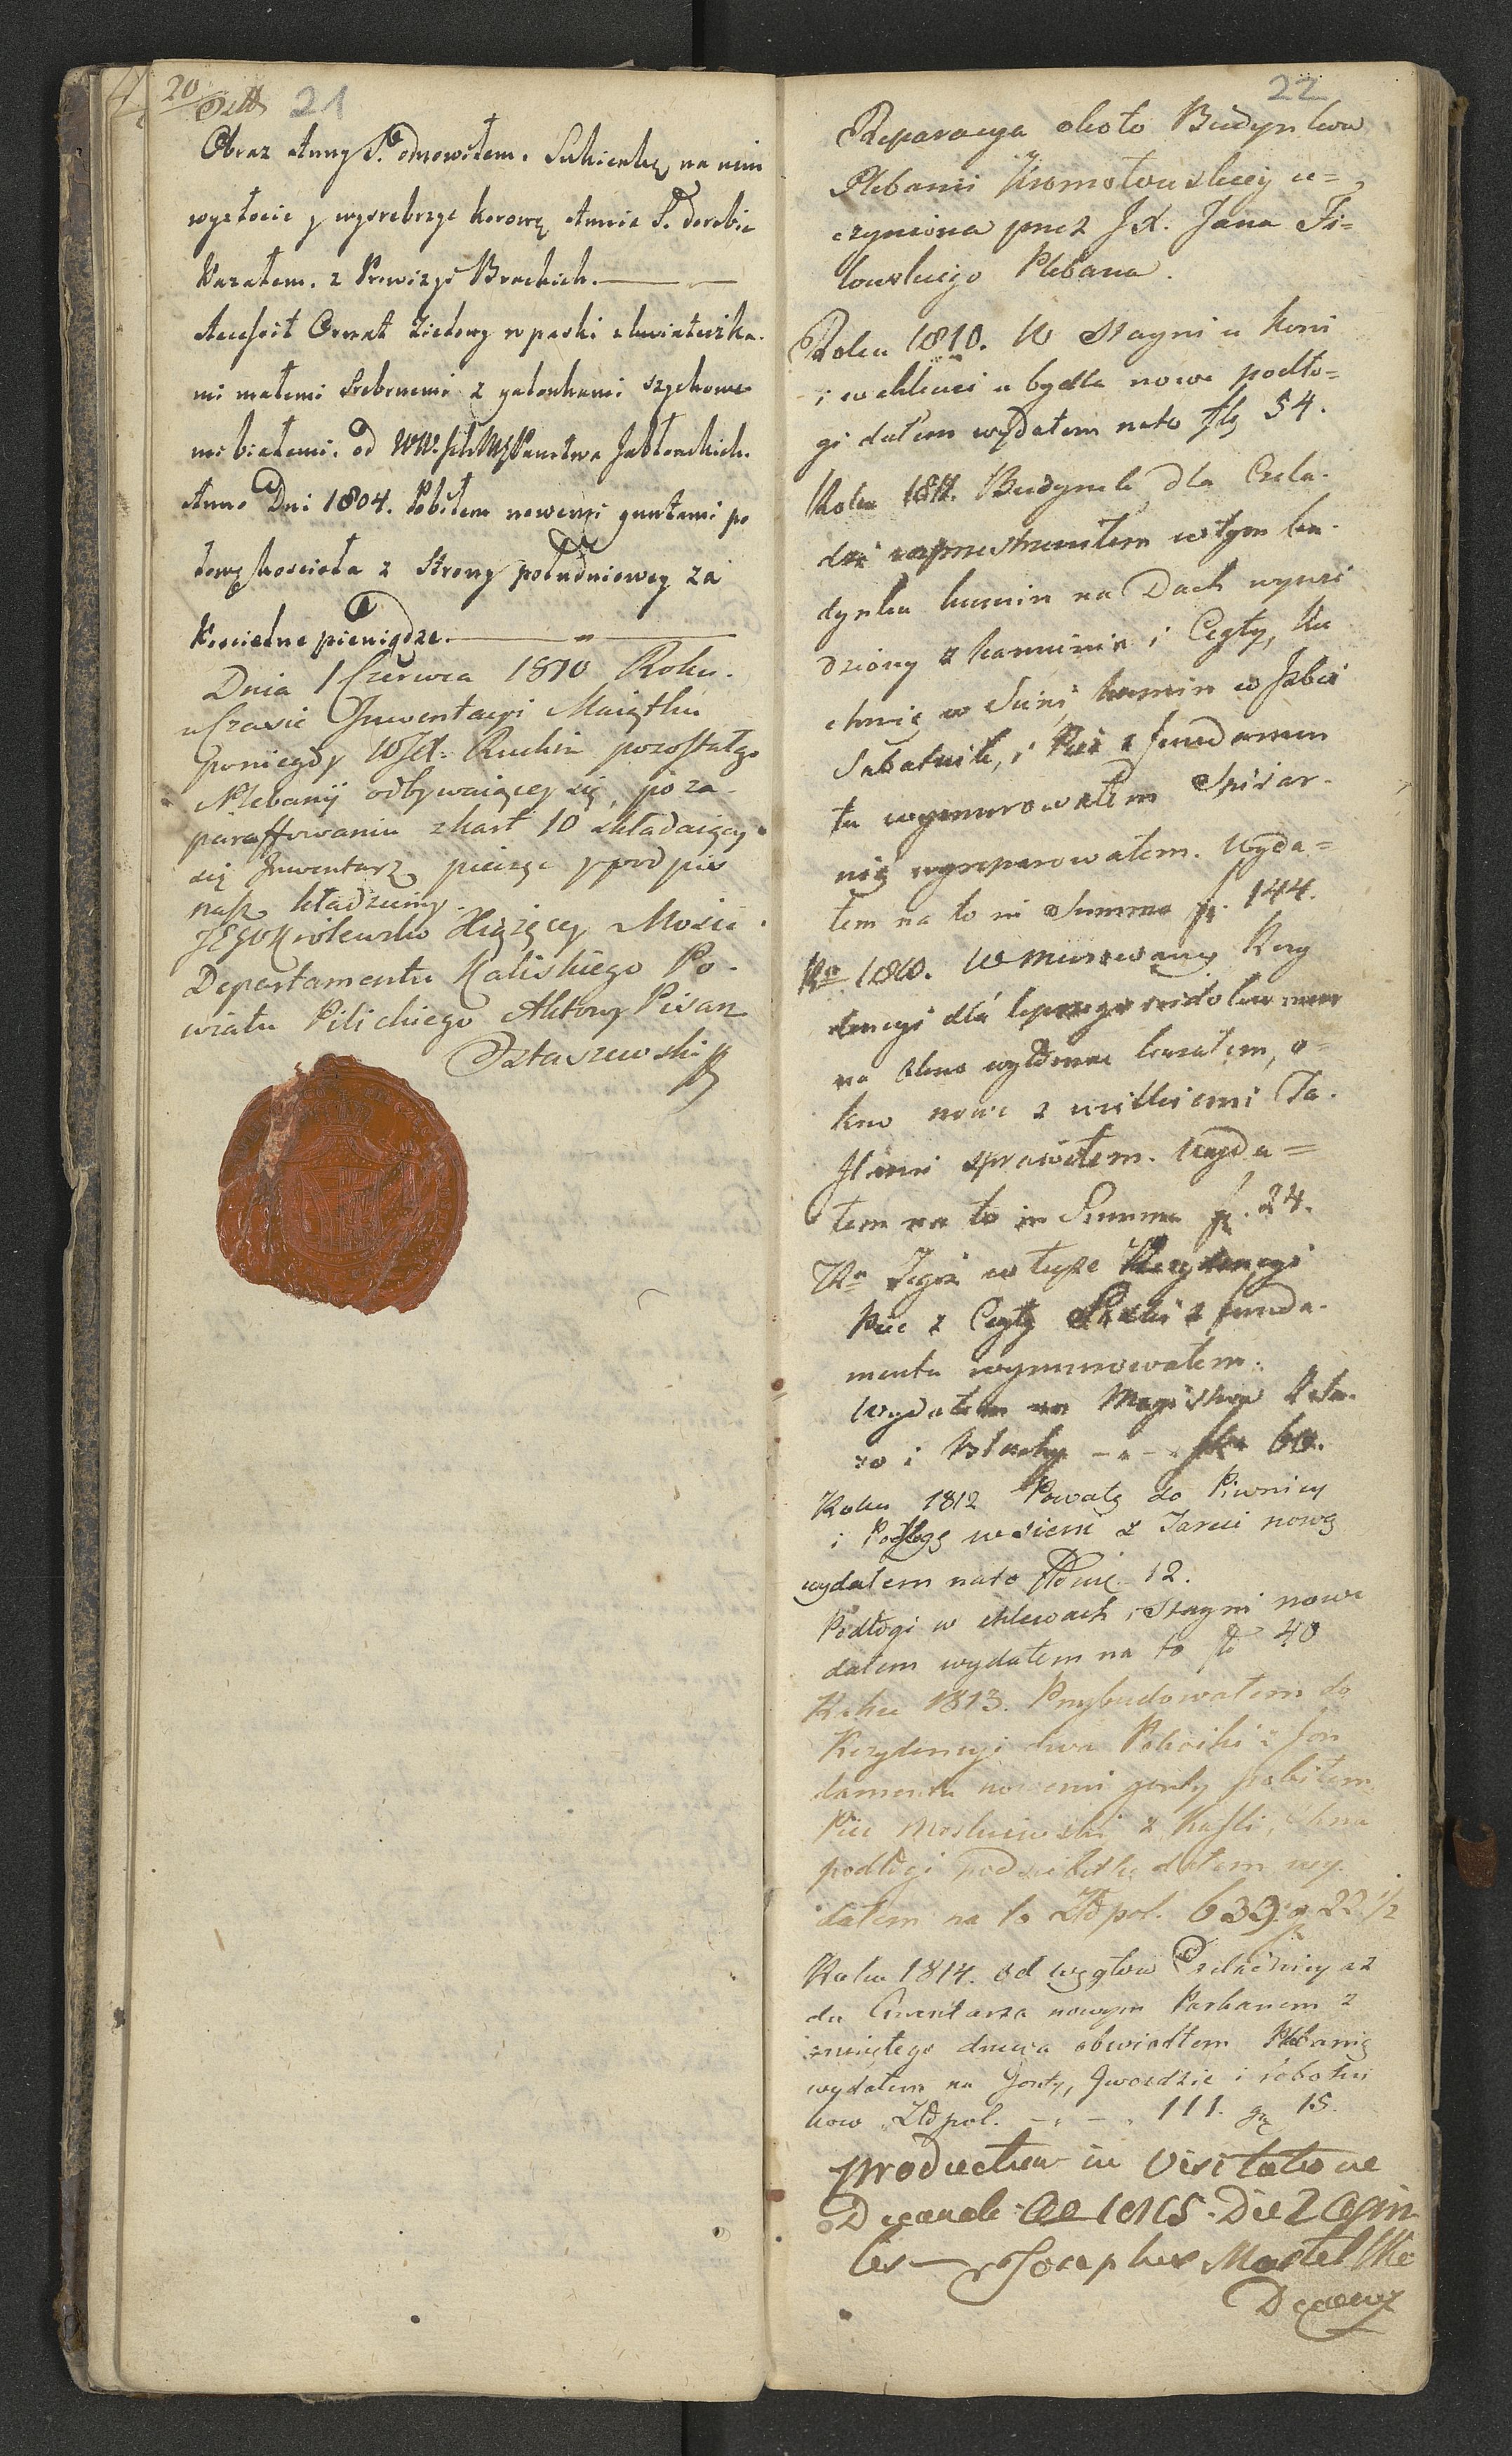 20
21
Obraz Anny S. odnowiłem. Sukienkę na nim
wyzłocić y wysrebrzyć koronę Annie S. dorobić
Kazałem. z Prowizyi Brackich.
Accessit Ornat Zielony w paski z kwiateczka-
mi małemi Srebrnemi z galonkami szychowe-
mi białemi. od Państwa Jabłonskich.
Anno Dni 1804. Pobiłem nowemi guntami po
łowę kościoła z Strony południowey za
Koscielne pieniądze.
Dnia 1 Czerwca 1810 Roku.
w Czasie Inwentacyi Maiątku
poniegdy pozostałego
Plebanij odbywaiącey się, po za-
paraffowaniu z kart 10 składaiący
się Inwentarz, pieczęć y podpis
nasz kładziemy.
JEGO Krolewsko Xiążęcey Mości
Departamentu Kaliskiego Po-
wiatu Pilickiego Aktowy Pisarz
Ostaszewski
22
Reparacya około Budynkow
Plebanii Kromołowskiey u=
czyniona przez JX. Jana Fi=
lowskiego Plebana.
Roku 1810. W Stayni u koni
i w chlewi u bydła nowe podło=
gi dałem wydałem na to flp 54.
Roku 1811. Budynek dla Czela-
dzi w tym bu-
dynku komin na Dach wypro
dziony z kamienia i Cegły, Ku
chnię w Sieni, komin w Izbie
Sabatnik, i Piec z fundamen
tu wymurowałem Spiżar-
nię wyreparowałem. Wyda=
łem na to in Summa fl. 144.
Ro 1810. W murowaney Rezy
dencyi dla lepszego
na okno kazałem, o=
kno nowe z wielkiemi Ta-
flami sprawiłem. Wyda=
łem na to in Summa fl. 24.
Ro Tegoż w teyże Rezydencyi
Piec z Cegły z funda-
mentu wymurowałem.
Wydałem na Maystra
zo i Blachy - - - 60.
Roku 1812 Powałę do Piwnicy
i Podłogę w sieni z Tarcic nową
wydałem na to 12.
Podłogi w chlewach i Stayni nowe
dałem wydałem na to fl 40
Roku 1813. Przybudowałem do
Rezydencyi dwa Pokoiki z fon
damentu nowemi gonty pobiłem
Piec z Kafli, Okna
podłogi podsiebitkę dałem wy-
dałem na to Złł pol. 639 g 22 1/2
Roku 1814. od węgłow aż
do Cmentarza nowym Parkanem z
drzewa obwiodłem Plebanię
wydałem na Gonty, Gwoździe i robotni
kow Złł pol. - - - 111. gr 15.
productum in Visitatione
Decanali Ao 1815. Die 2 Apri
lis Josephus